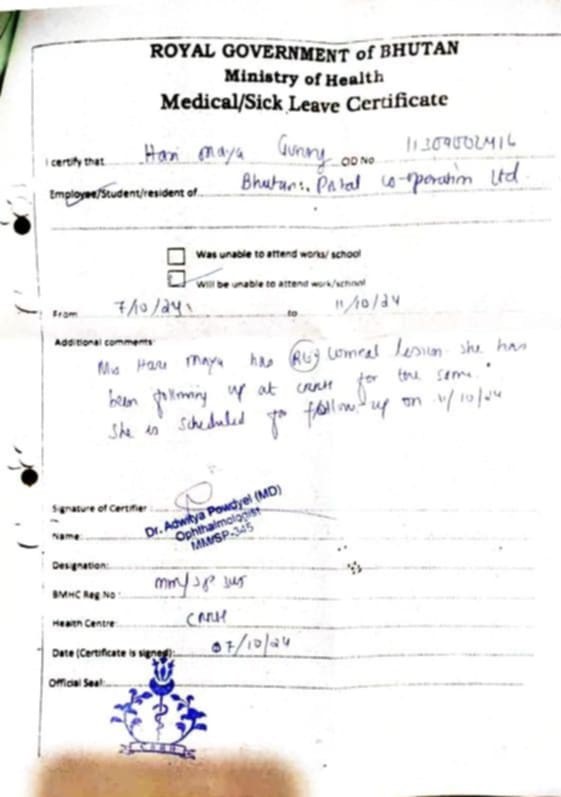 ROYAL GOVERNMENT of BHUTAN
Ministry of Health
Medical/Sick Leave Certificate
I certify that Hari maya OD No 11309002416
Employee/Student/resident of Bhutan Co-operation Ltd.
Was unable to attend works/ school
Will be unable to attend work/school
From 7/10/24 to 11/10/24
Additional comments:
Mis Hari maya has corneal lesion she has
been following up at CRRH for the same.
She is scheduled for follow-up on 11/10/24
Signature of Certifier:
Dr. Adwitya Powdyel (MD)
Ophthalmologist
MM/SP-345
Name:
Designation:
BMHC Reg No : mm/sp
Health Centre: CRRH
Date (Certificate is signed): 07/10/24
Official Seal: